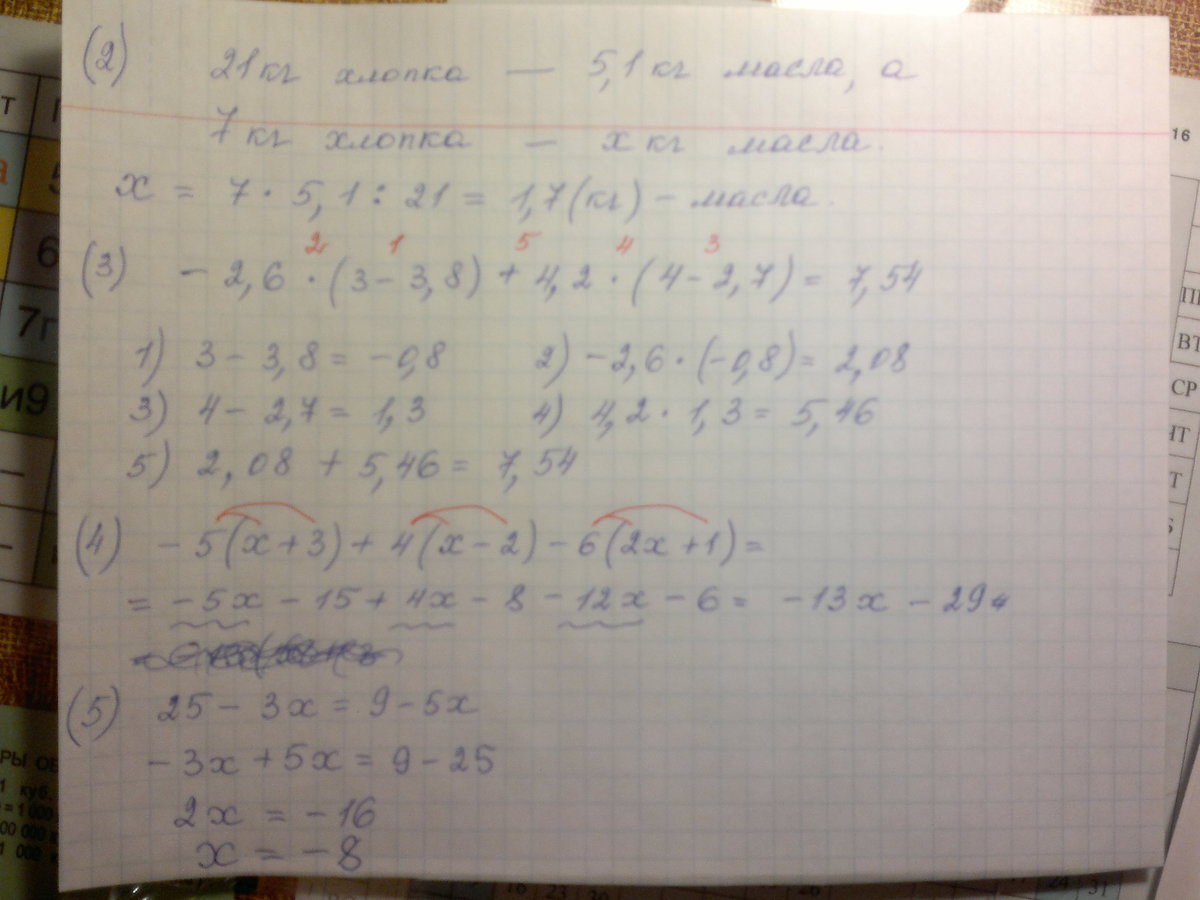 (2) 21 кг хлопка — 5,1 кг масла, а
7 кг хлопка — х кг масла.
х = 7 · 5,1 : 21 = 1,7 (кг) – масла.
2 1 5 4 3
(3) – 2,6 · (3 – 3,8) + 4,2 · (4 – 2,7) = 7,54
1) 3 – 3,8 = –0,8 2) –2,6 · (–0,8) = 2,08
3) 4 – 2,7 = 1,3 4) 4,2 · 1,3 = 5,46
5) 2,08 + 5,46 = 7,54
(4) – 5(х + 3) + 4(х – 2) – 6(2х + 1) =
= –5х – 15 + 4х – 8 – 12х – 6 = –13х – 29
(5) 25 – 3х = 9 – 5х
– 3х + 5х = 9 – 25
2х = –16
х = –8
16
ВТ
СР
6
7г
и9
РЫ ОБ
1 куб.
= 1 000
16 23 30
26
24 31